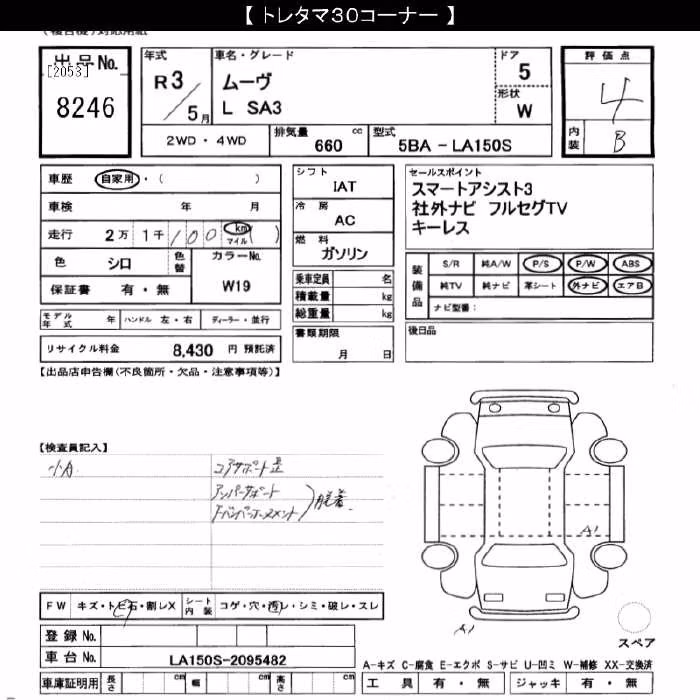 【 トレタマ30コーナー 】
出品No.
[2053]
8246
年式
R3
5月
車名・グレード
ムーヴ
L SA3
ドア
5
形状
W
評価点
4
内装
B
2WD・4WD
排気量 660 cc
型式 5BA - LA150S
車歴 自家用・( )
車検 年 月
走行 2万 1千 100 km マイル ( )
色 シロ 色替 カラーNo. W19
保証書 有・無
シフト
IAT
冷房
AC
燃料
ガソリン
セールスポイント
スマートアシスト3
社外ナビ フルセグTV
キーレス
乗車定員 名
積載量 kg
総重量 kg
装備品
S/R 純A/W P/S P/W ABS
純TV 純ナビ 革シート 外ナビ エアB
ナビ型番：
モデル年式 年 ハンドル 左・右 ディーラー・並行
書類期限
月 日
後日品
リサイクル料金 8,430 円 預託済
【出品店申告欄(不良箇所・欠品・注意事項等)】
【検査員記入】
小キ
コアサポート歪
アンパーサポート
F・バンパーホースメント
脱着
A1
A1
FW キズ・トビ石・割レX シート内装 コゲ・穴・汚レ・シミ・破レ・スレ
登録No.
車台No. LA150S-2095482
スペア
A-キズ C-腐食 E-エクボ S-サビ U-凹ミ W-補修 XX-交換済
車庫証明用 長さ cm 幅 cm 高さ cm
工具 有・無 ジャッキ 有・無